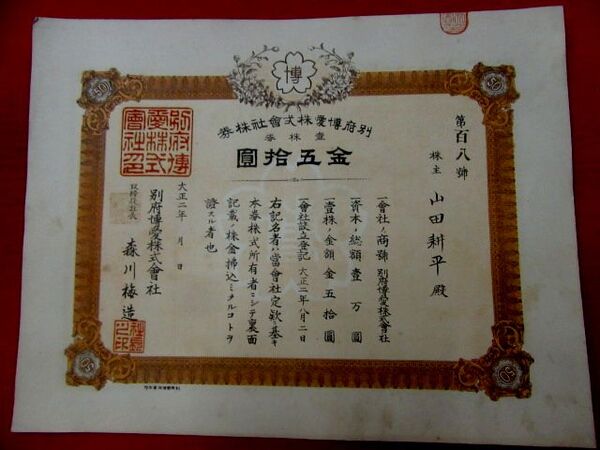 博
別府博愛株式會社株券
壹株券
金五拾圓
第百八號
株主 山田耕平殿
一會社ノ商號 別府博愛株式會社
一資本ノ總額 壹万圓
一壹株ノ金額 金五拾圓
一會社設立登記 大正二年八月二日
右記名者ハ當會社定款ニ基キ
本券株式所有者ニシテ裏面
記載ノ株金拂込ミタルコトヲ
證スル者也
大正二年 月 日
別府博愛株式會社
取締役社長 森川梅造
別府博愛株式會社之印
社長之印
50
50
50
50